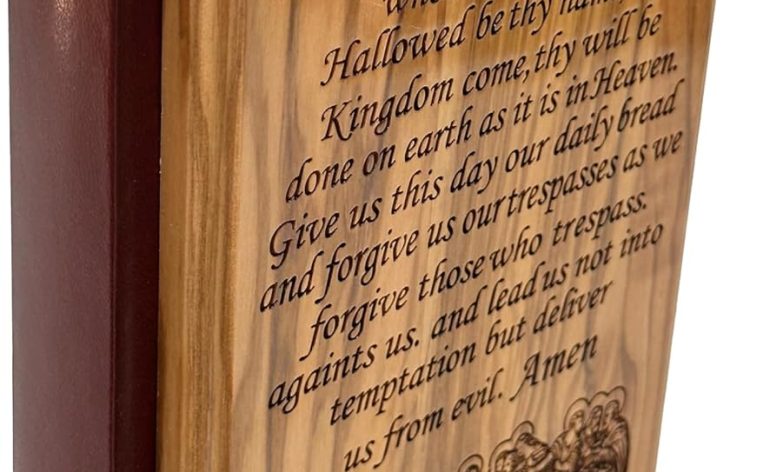 Hallowed be thy name,
Kingdom come, thy will be
done on earth as it is in Heaven.
Give us this day our daily bread
and forgive us our trespasses as we
forgive those who trespass.
againts us. and lead us not into
temptation but deliver
us from evil. Amen